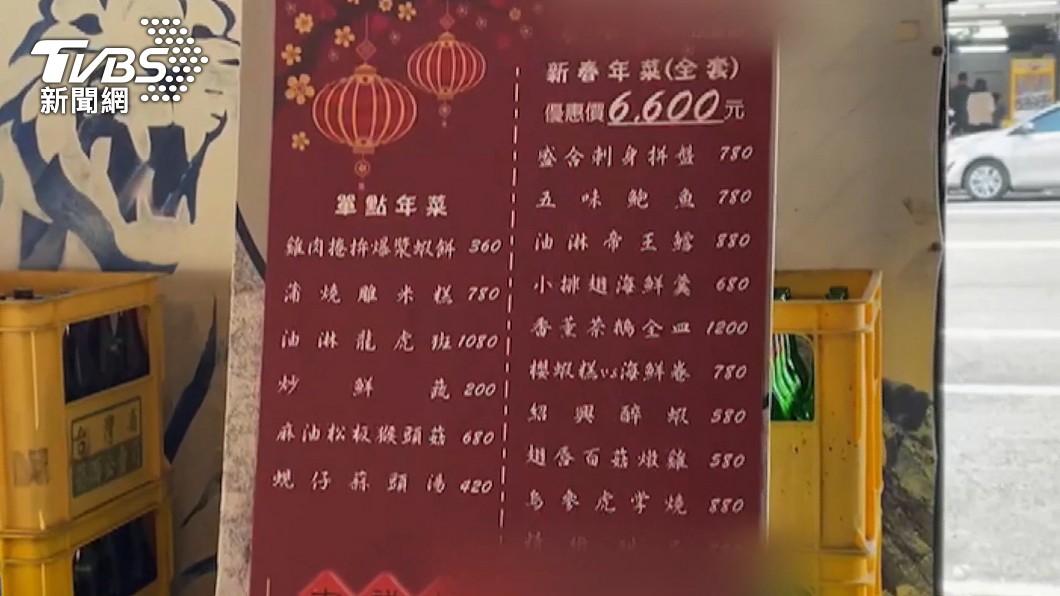 TVBS
新聞網
單點年菜
雞肉捲拚爆漿蝦餅 360
蒲燒雕米糕 780
油淋龍虎班 1080
炒鮮蔬 200
麻油松板猴頭菇 680
蜆仔蒜頭湯 420
新春年菜(全套)
優惠價6,600元
盛合刺身拼盤 780
五味鮑魚 780
油淋帝王鱈 880
小排翅海鮮羹 680
香薰茶鵝全皿 1200
櫻蝦糕vs海鮮卷 780
紹興醉蝦 580
翅唇百菇燉雞 580
烏參虎掌燒 880